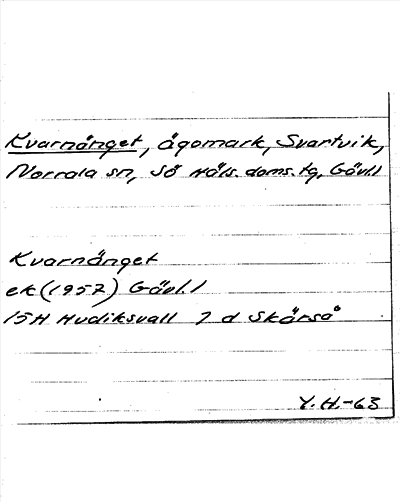 Kvarnänget, ägomark, Svartvik,
Norrala sn, Sö Häls. doms. tg, Gävl.l
Kvarnänget
ek (1957) Gävl.l
15H Hudiksvall 7 d Skärså
Y. H.-63